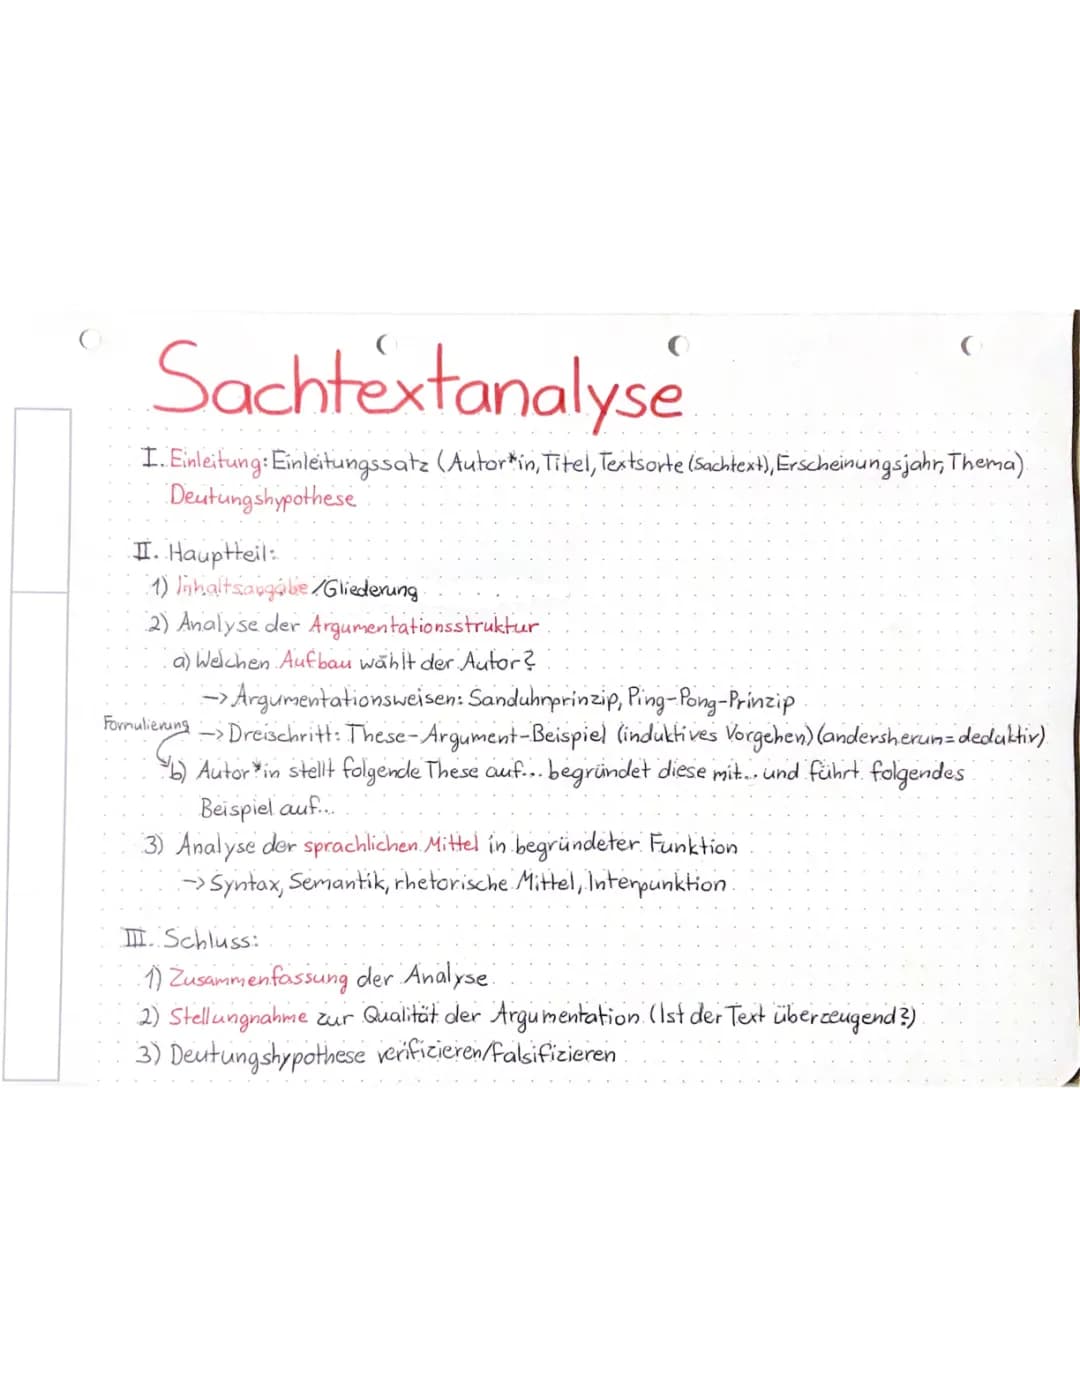 Sachtextanalyse
I. Einleitung: Einleitungssatz (Autor*in, Titel, Textsorte (Sachtext), Erscheinungsjahr, Thema)
Deutungshypothese
II. Hauptteil:
1) Inhaltsangabe/Gliederung
2) Analyse der Argumentationsstruktur
a) Welchen Aufbau wählt der Autor?
-> Argumentationsweisen: Sanduhrprinzip, Ping-Pong-Prinzip
Formulierung -> Dreischritt: These-Argument-Beispiel (induktives Vorgehen) (andersherum = deduktiv)
b) Autor*in stellt folgende These auf... begründet diese mit... und führt folgendes
Beispiel auf...
3) Analyse der sprachlichen Mittel in begründeter Funktion
-> Syntax, Semantik, rhetorische Mittel, Interpunktion
III. Schluss:
1) Zusammenfassung der Analyse
2) Stellungnahme zur Qualität der Argumentation (Ist der Text überzeugend?)
3) Deutungshypothese verifizieren/falsifizieren